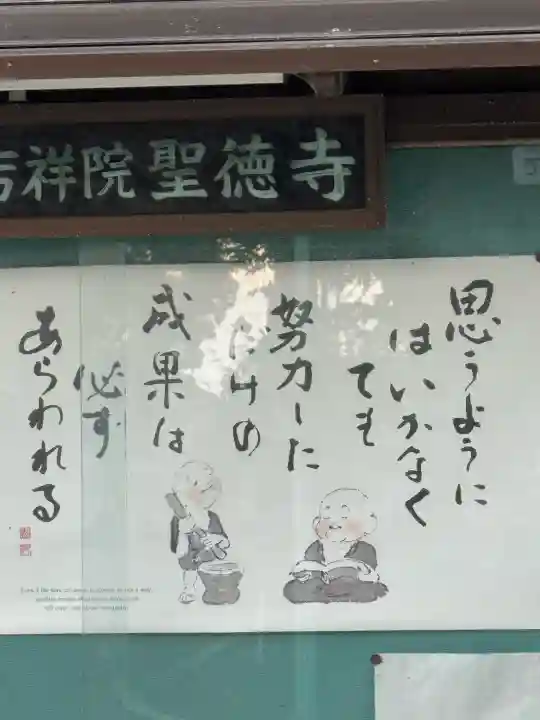 吉祥院聖徳寺
思うように
はいかなく
ても
努力した
だけの
成果は
必ず
あらわれる